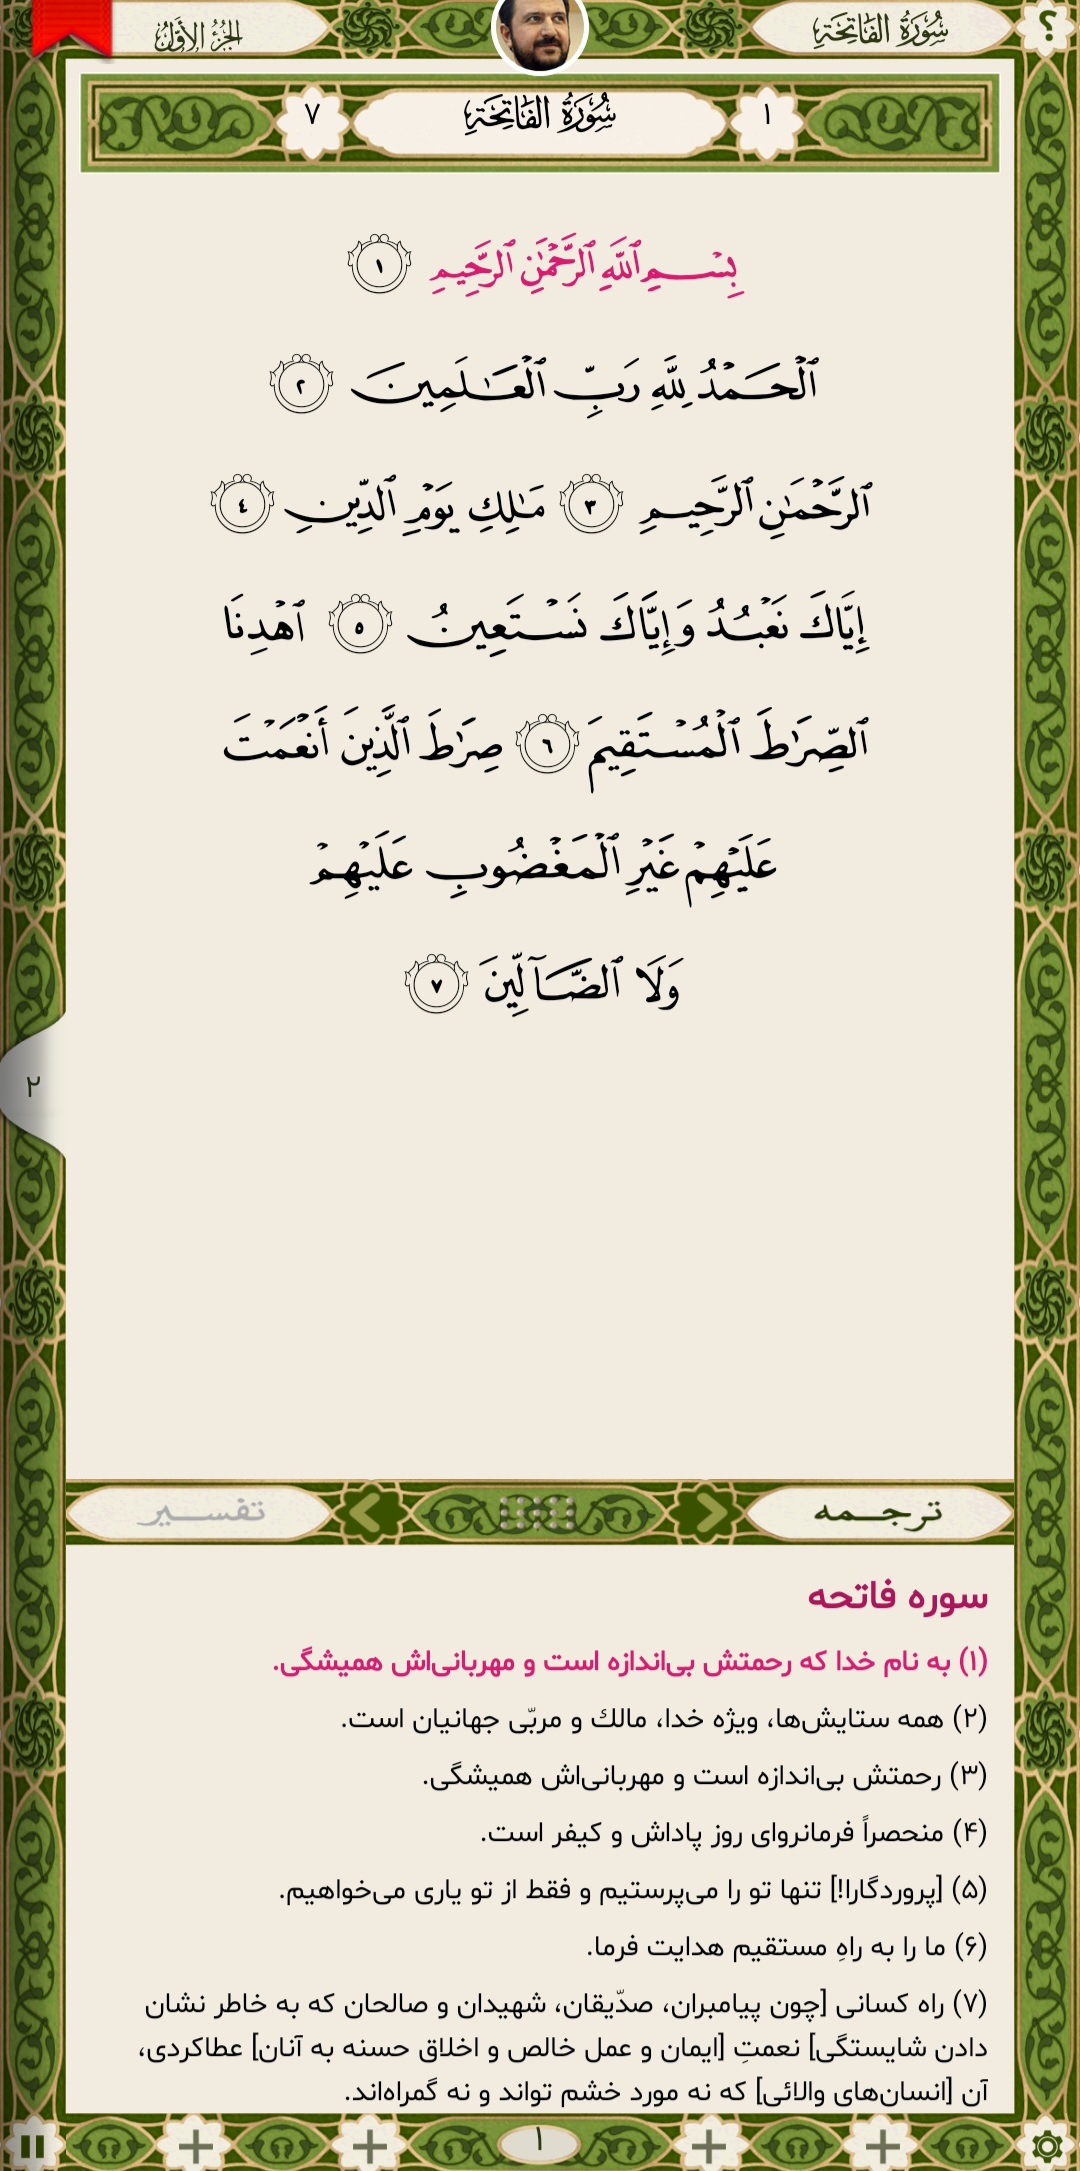 ؟
سُورَةُ الفَاتِحَةِ
الجُزْءُ الأَوَّلُ
١ سُورَةُ الفَاتِحَةِ ٧
بِسْمِ ٱللَّهِ ٱلرَّحْمَٰنِ ٱلرَّحِيمِ ١
ٱلْحَمْدُ لِلَّهِ رَبِّ ٱلْعَٰلَمِينَ ٢
ٱلرَّحْمَٰنِ ٱلرَّحِيمِ ٣ مَٰلِكِ يَوْمِ ٱلدِّينِ ٤
إِيَّاكَ نَعْبُدُ وَإِيَّاكَ نَسْتَعِينُ ٥ ٱهْدِنَا
ٱلصِّرَٰطَ ٱلْمُسْتَقِيمَ ٦ صِرَٰطَ ٱلَّذِينَ أَنْعَمْتَ
عَلَيْهِمْ غَيْرِ ٱلْمَغْضُوبِ عَلَيْهِمْ
وَلَا ٱلضَّآلِّينَ ٧
۲
ترجمه
تفسیر
سوره فاتحه
(۱) به نام خدا که رحمتش بی‌اندازه است و مهربانی‌اش همیشگی.
(۲) همه ستایش‌ها، ویژه خدا، مالك و مربّی جهانیان است.
(۳) رحمتش بی‌اندازه است و مهربانی‌اش همیشگی.
(۴) منحصراً فرمانروای روز پاداش و کیفر است.
(۵) [پروردگارا!] تنها تو را می‌پرستیم و فقط از تو یاری می‌خواهیم.
(۶) ما را به راهِ مستقیم هدایت فرما.
(۷) راه کسانی [چون پیامبران، صدّیقان، شهیدان و صالحان که به خاطر نشان
دادن شایستگی] نعمتِ [ایمان و عمل خالص و اخلاق حسنه به آنان] عطاکردی،
آن [انسان‌های والائی] که نه مورد خشم تواند و نه گمراه‌اند.
۱